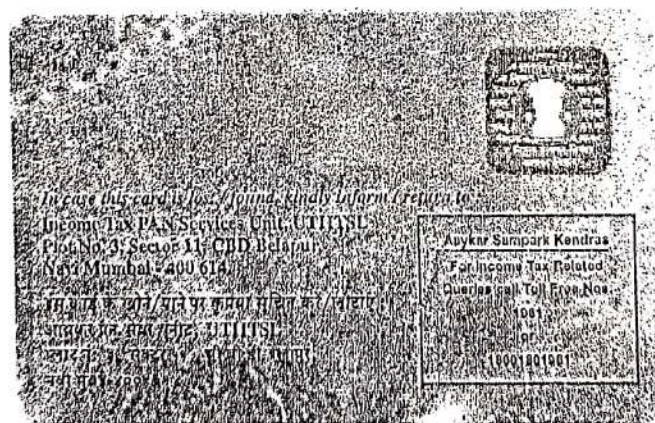 In case this card is lost / found, kindly inform / return to :
Income Tax PAN Services Unit, UTIITSL
Plot No. 3, Sector 11, CBD Belapur,
Navi Mumbai - 400 614.
इस कार्ड के खोने/पाने पर कृपया सूचित करें/लौटाएं :
UTIITSL
Aaykar Sampark Kendras
For Income Tax Related
Queries call Toll Free Nos.
1961
or
18001801961